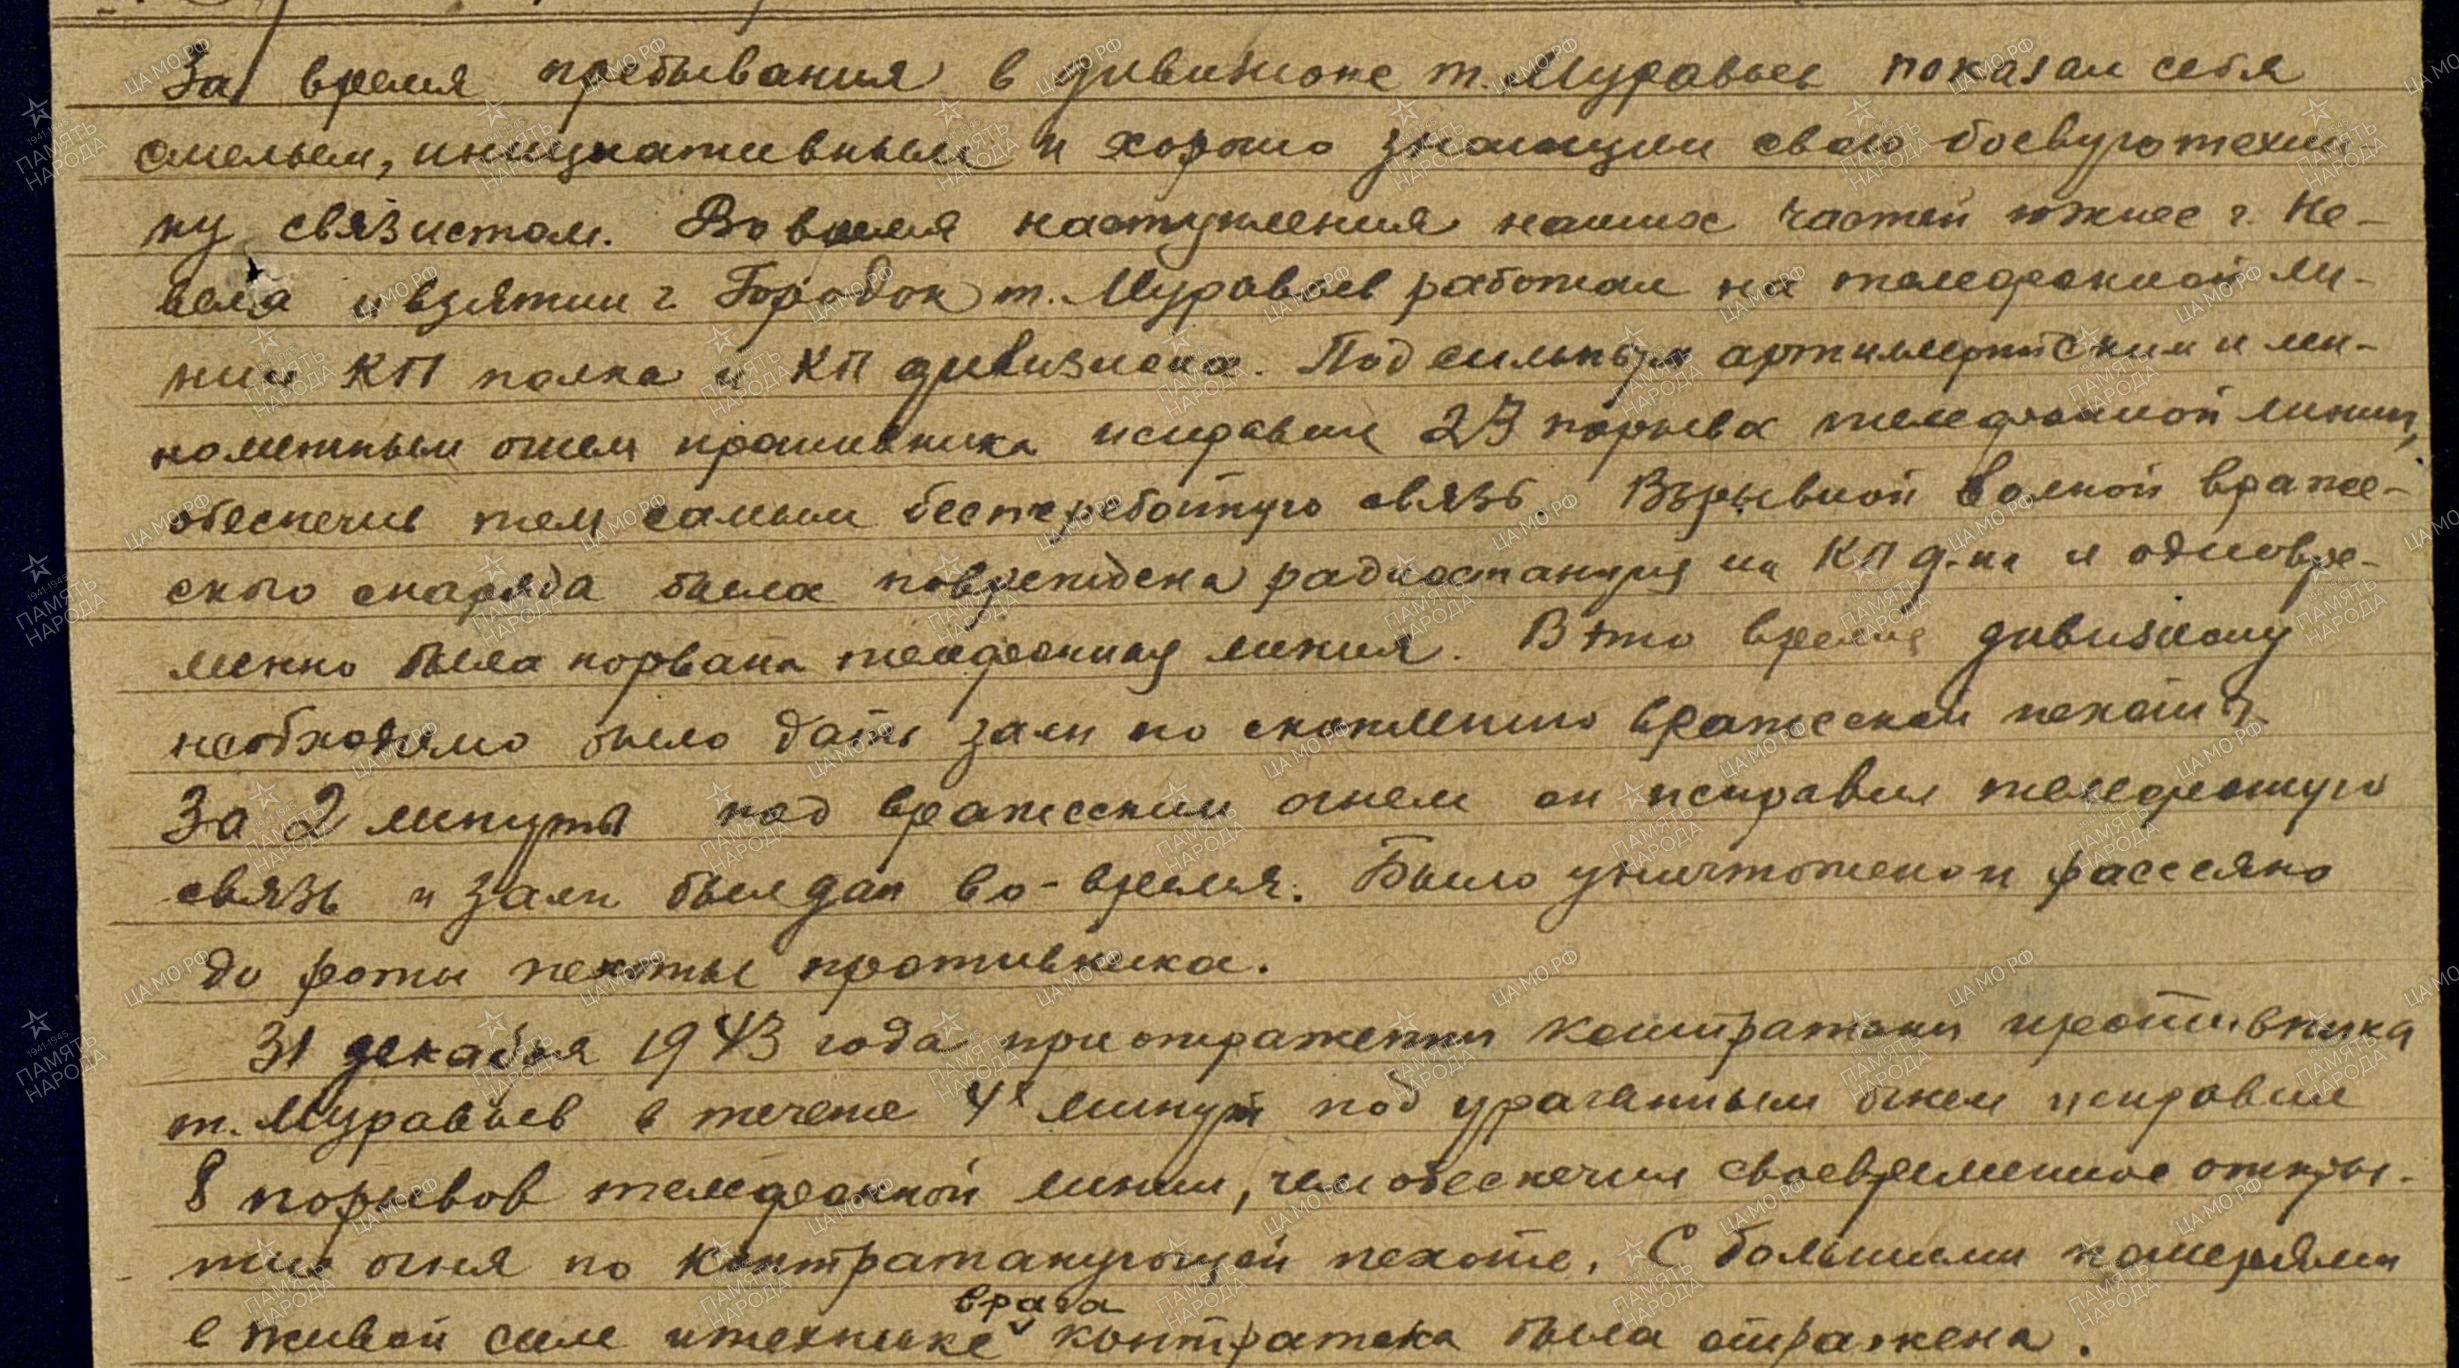 За время пребывания в дивизионе т. Муравьев показал себя
смелым, инициативным и хорошо знающим свою боевую техни-
ку связистом. Во время наступления наших частей южнее г. Не-
веля и взятии г Городок т. Муравьев работал на телефонной ли-
нии КП полка и КП дивизиона. Под сильным артиллерийским и ми-
нометным огнем противника исправил 23 порыва телефонной линии,
обеспечив тем самым бесперебойную связь. Взрывной волной враже-
ского снаряда была повреждена радиостанция на КП д-на и одновре-
менно была порвана телефонная линия. В это время дивизиону
необходимо было дать залп по скоплению вражеской пехоты.
За 2 минуты под вражеским огнем он исправил телефонную
связь и залп был дан во-время. Было уничтожено и рассеяно
до роты пехоты противника.
31 декабря 1943 года при отражении контратаки противника
т. Муравьев в течение 4х минут под ураганным огнем исправил
8 порывов телефонной линии, чем обеспечил своевременное откры-
тие огня по контратакующей пехоте. С большими потерями
в живой силе и технике врага контратака была отражена.